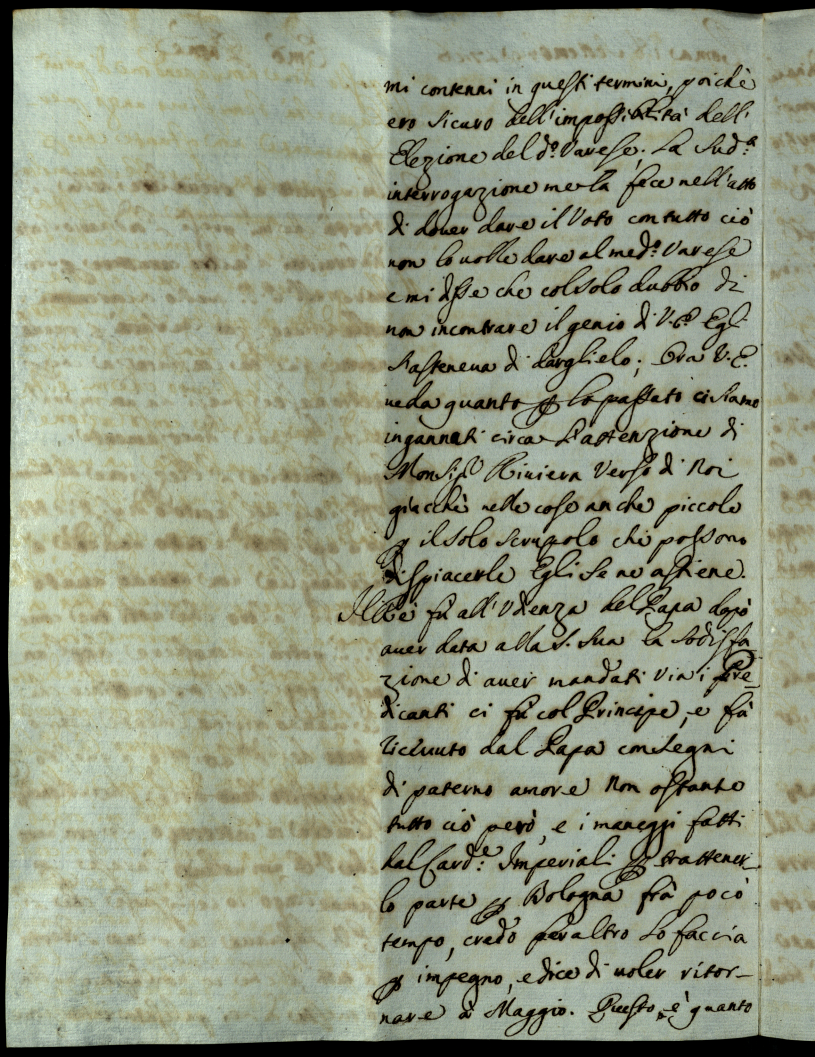 mi contenni in questi termini, poichè
ero sicuro dell'impossibilità dell'
Elezione del d.º Varese. La Sud.ª
interrogazione me la fece nell'atto
di dover dare il Voto con tutto ciò
non lo volle dare al med.º Varese
e mi disse che col solo dubbio di
non incontrare il genio di V.E. Egli
s'asteneva di darglielo; Ora V.E.
veda quanto p lo passato ci siamo
ingannati circa l'attenzione di
Monsig.r Riviera verso di Noi
giacchè nelle cose anche piccole
p il solo scrupolo che possono
dispiacerle Egli se ne astiene.
Il Rè fù all'Udienza del Papa dopò
aver data alla S. Sua la sodisfa
zione di aver mandati via i Pre-
dicanti ci fù col Principe, e fù
ricevuto dal Papa con segni
di paterno amore Non ostante
tutto ciò però, e i maneggi fatti
dal Card.e Imperiali p trattener-
lo parte p Bologna frà pocò
tempo, credo peraltro lo faccia
p impegno, e dice di voler ritor-
nare à Maggio. Questo è quanto